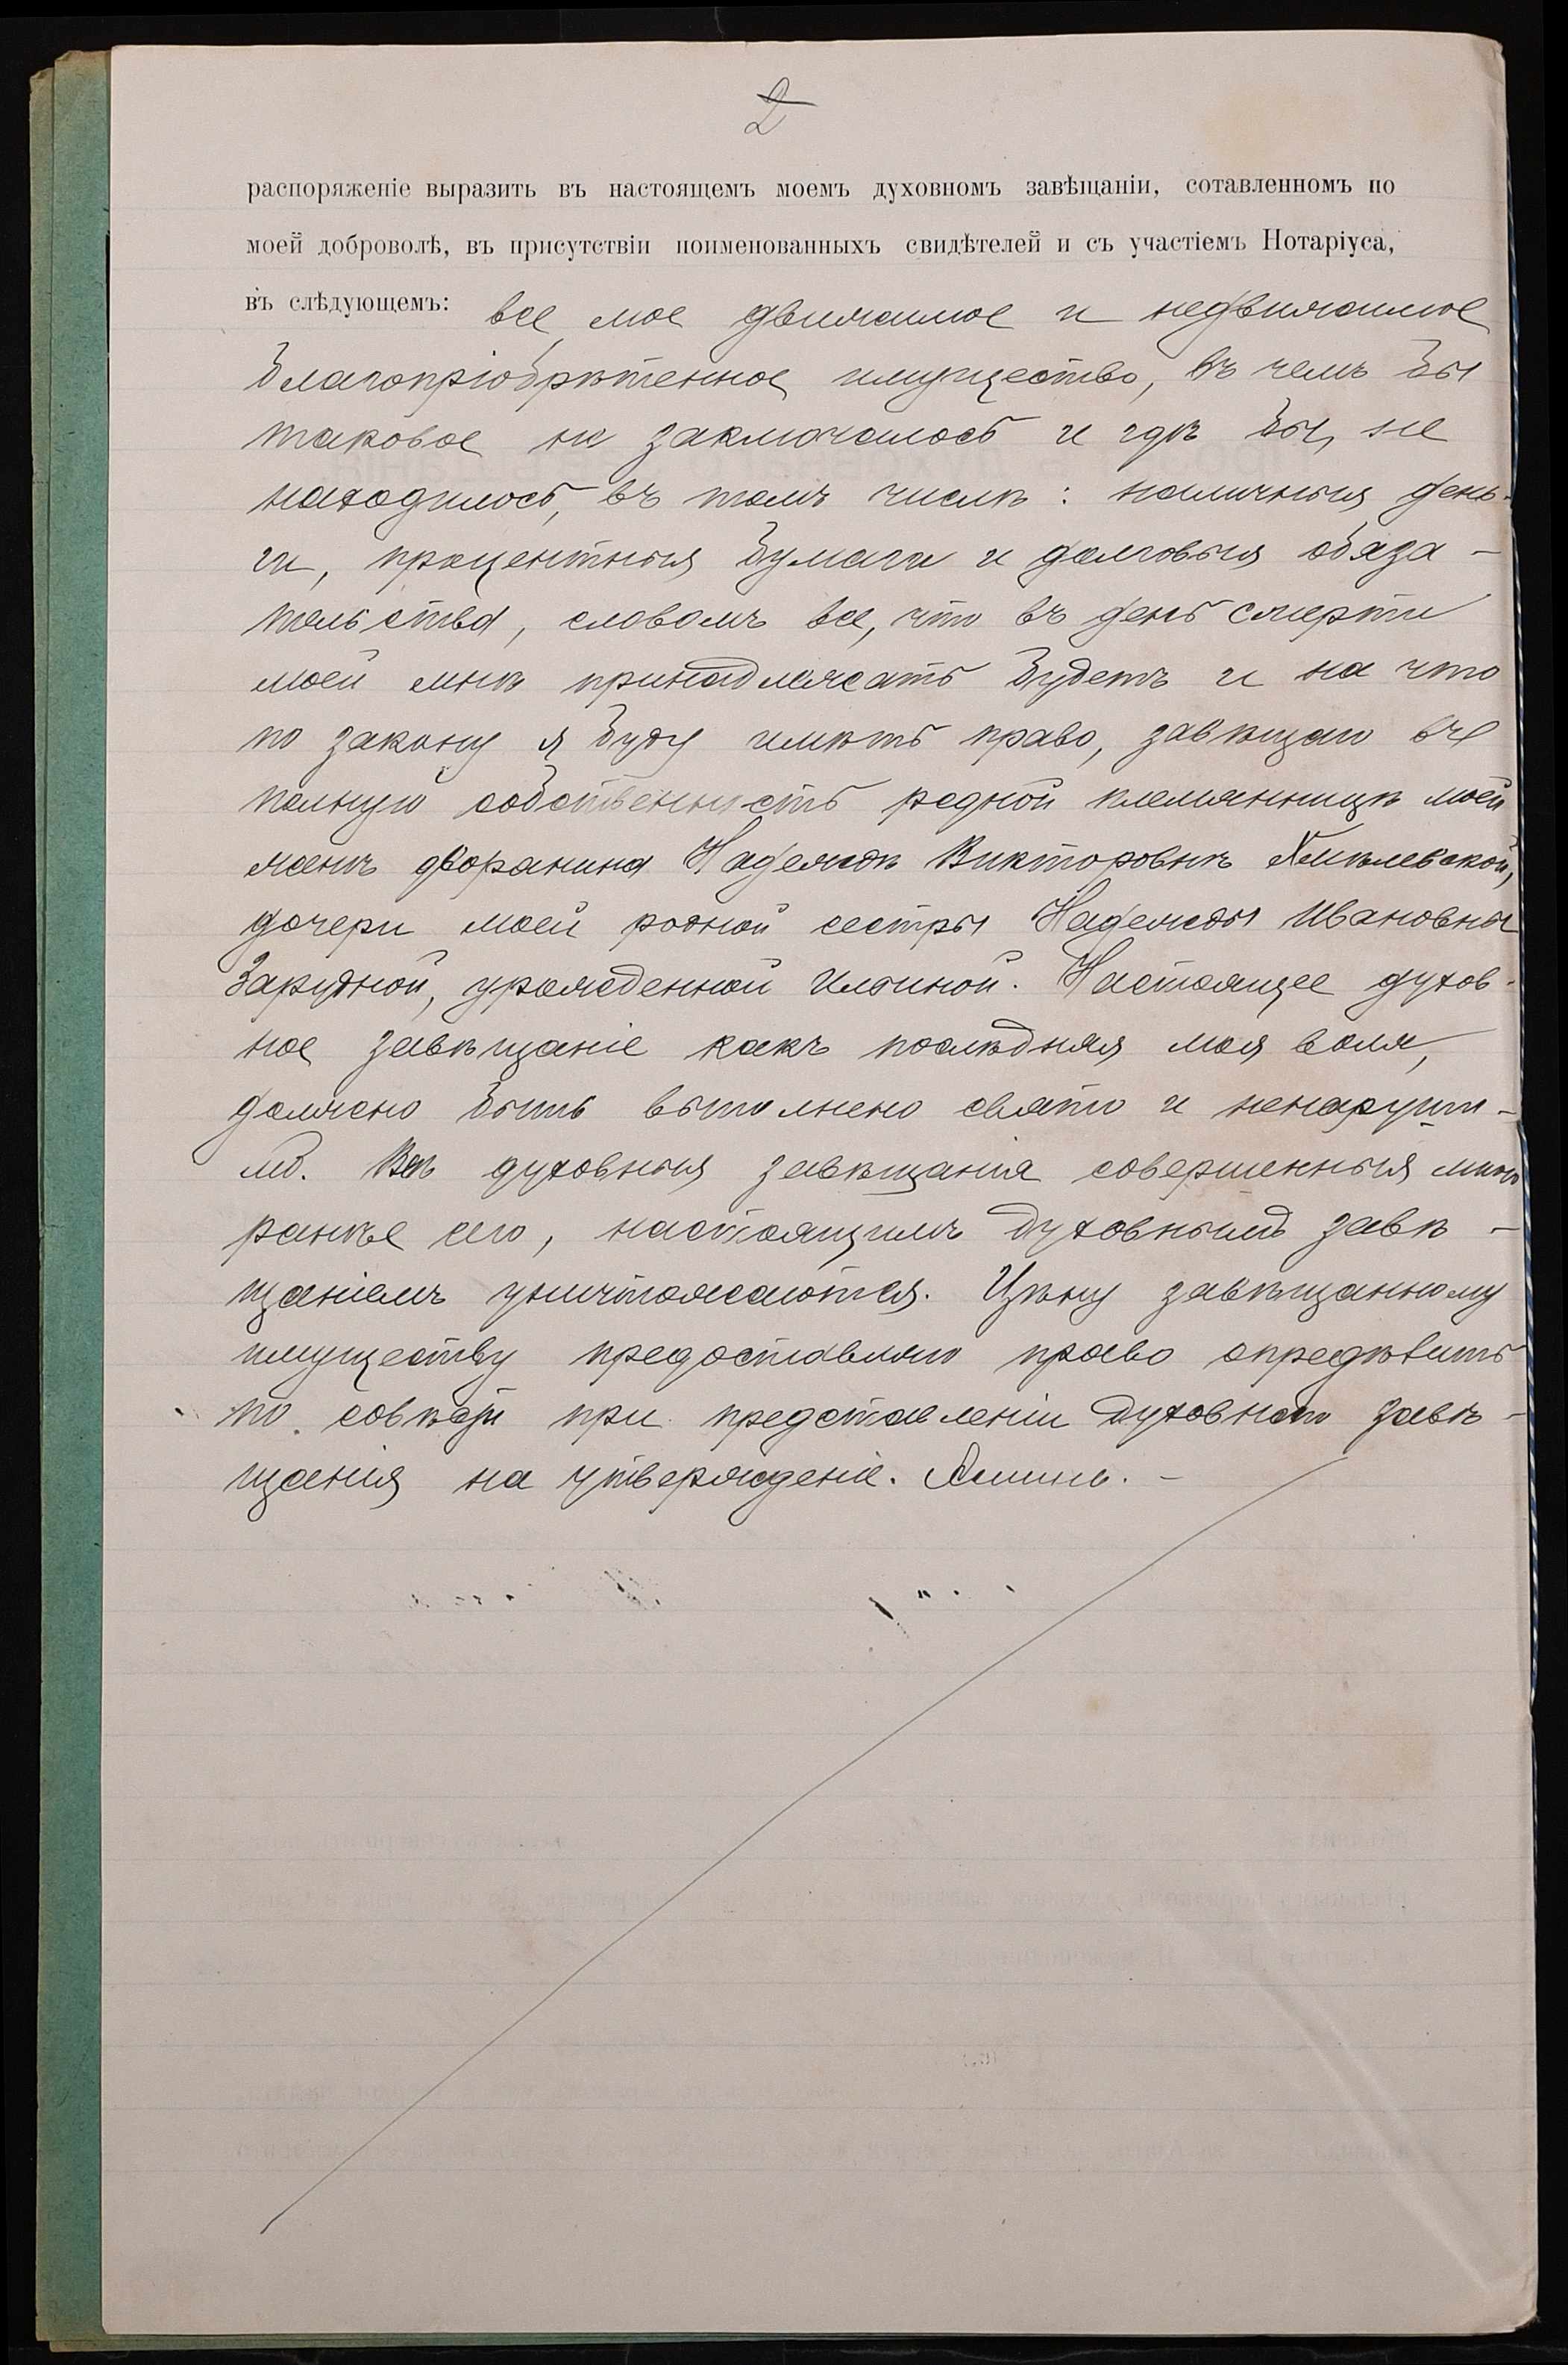 2
распоряженіе выразить въ настоящемъ моемъ духовномъ завѣщаніи, сотавленномъ по
моей доброволѣ, въ присутствіи поименованныхъ свидѣтелей и съ участіемъ Нотаріуса,
въ слѣдующемъ: все мое движимое и недвижимое
благопріобрѣтенное имущество, въ чемъ бы
таковое не заключалось и гдѣ бы не
находилось, въ томъ числѣ: наличныя день-
ги, процентныя бумаги и долговыя обяза-
тельства, словомъ все, что въ день смерти
моей мнѣ принадлежать будетъ и на что
по закону я буду имѣть право, завѣщаю въ
полную собственность родной племянницѣ моей
женѣ дворянина Надеждѣ Викторовнѣ Хмѣлевской,
дочери моей родной сестры Надежды Ивановны
Зарудной, урожденной Ильиной. Настоящее духов-
ное завѣщаніе какъ послѣдняя моя воля,
должно быть выполнено свято и ненаруши-
мо. Всѣ духовныя завѣщанія совершенныя мною
ранѣе сего, настоящимъ духовнымъ завѣ-
щаніемъ уничтожаются. Цѣну завѣщанному
имуществу предоставляю право опредѣлить
по совѣсти при представленіи духовнаго завѣ-
щанія на утвержденіе. Аминь. -